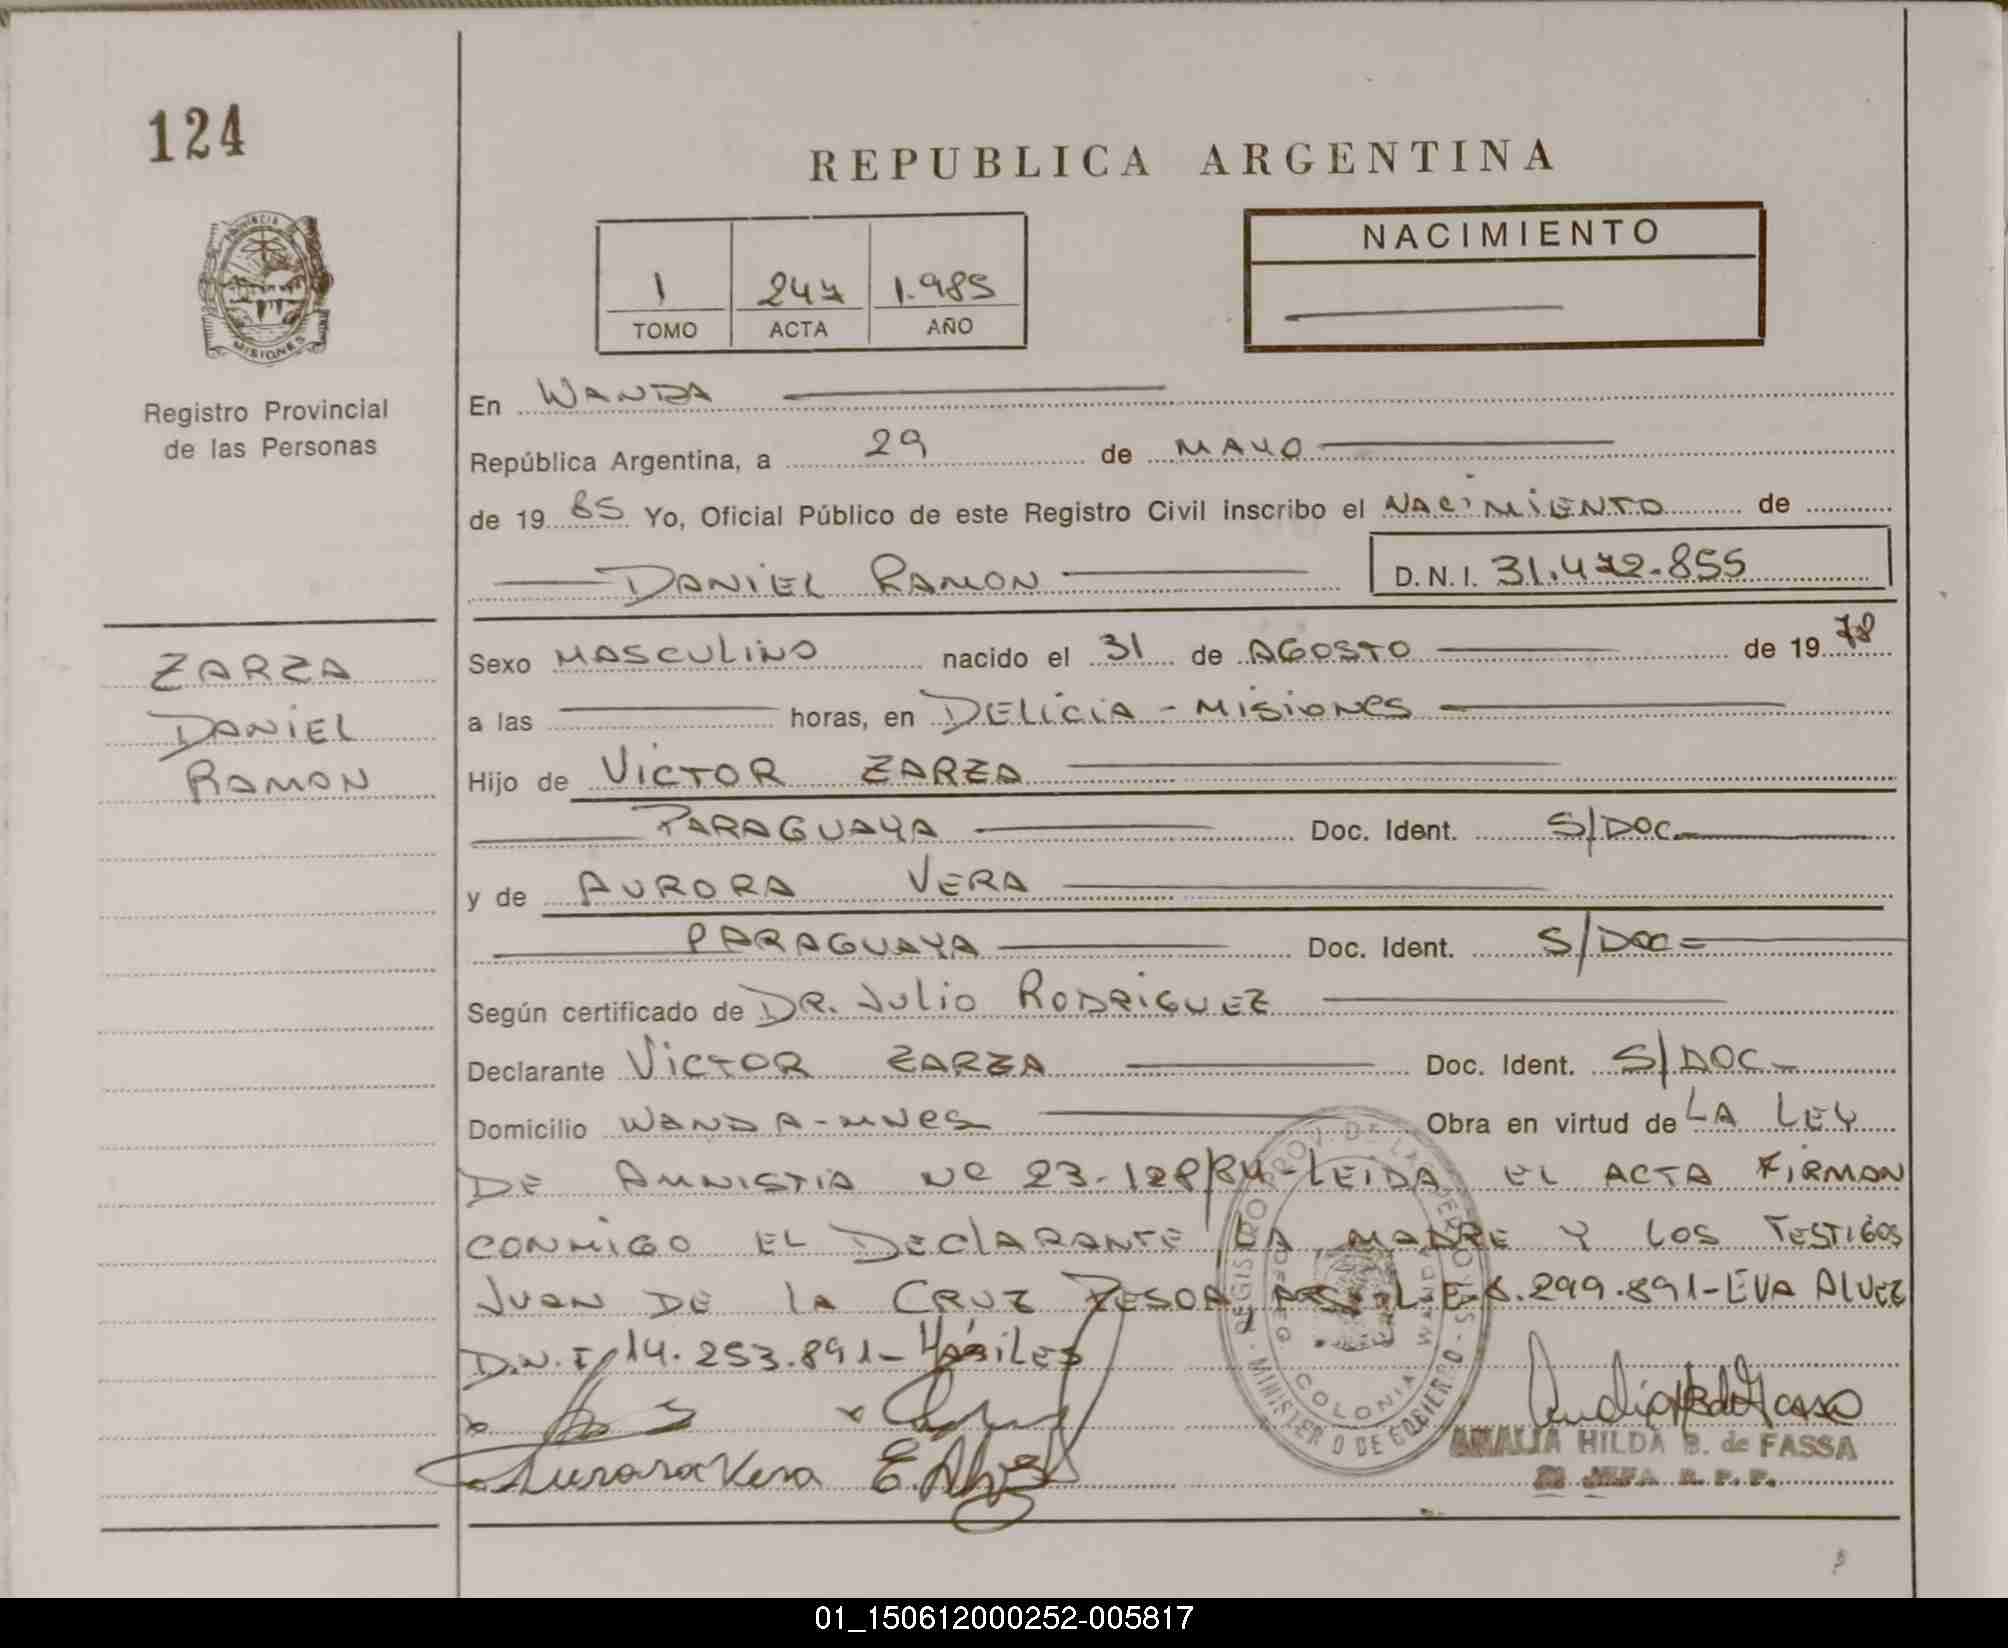 124
REPUBLICA ARGENTINA
PROVINCIA
MISIONES
NACIMIENTO
1 247 1.985
TOMO ACTA AÑO
Registro Provincial
de las Personas
En WANDA
República Argentina, a 29 de MAYO
de 19 85 Yo, Oficial Público de este Registro Civil inscribo el NACIMIENTO de
DANIEL RAMON D.N.I. 31.472.855
ZARZA
DANIEL
RAMON
Sexo MASCULINO nacido el 31 de AGOSTO de 19 78
a las horas, en DELICIA - MISIONES
Hijo de VICTOR ZARZA
PARAGUAYA Doc. Ident. S/DOC
y de AURORA VERA
PARAGUAYA Doc. Ident. S/DOC
Según certificado de DR. JULIO RODRIGUEZ
Declarante VICTOR ZARZA Doc. Ident. S/DOC
Domicilio WANDA-MNES Obra en virtud de LA LEY
DE AMNISTIA Nº 23.128/84 - LEIDA EL ACTA FIRMAN
CONMIGO EL DECLARANTE, LA MADRE Y LOS TESTIGOS
JUAN DE LA CRUZ PESOA, L.E. 299.891 - EVA ALVEZ
D.N.I 14.253.891 - HÁBILES
Aurora Vera E. Alvez
REGISTRO PROV. DE LAS PERSONAS - MINISTERIO DE GOBIERNO
COLONIA WANDA
AMALIA HILDA B. de FASSA
JEFA R.P.P.
01_150612000252-005817